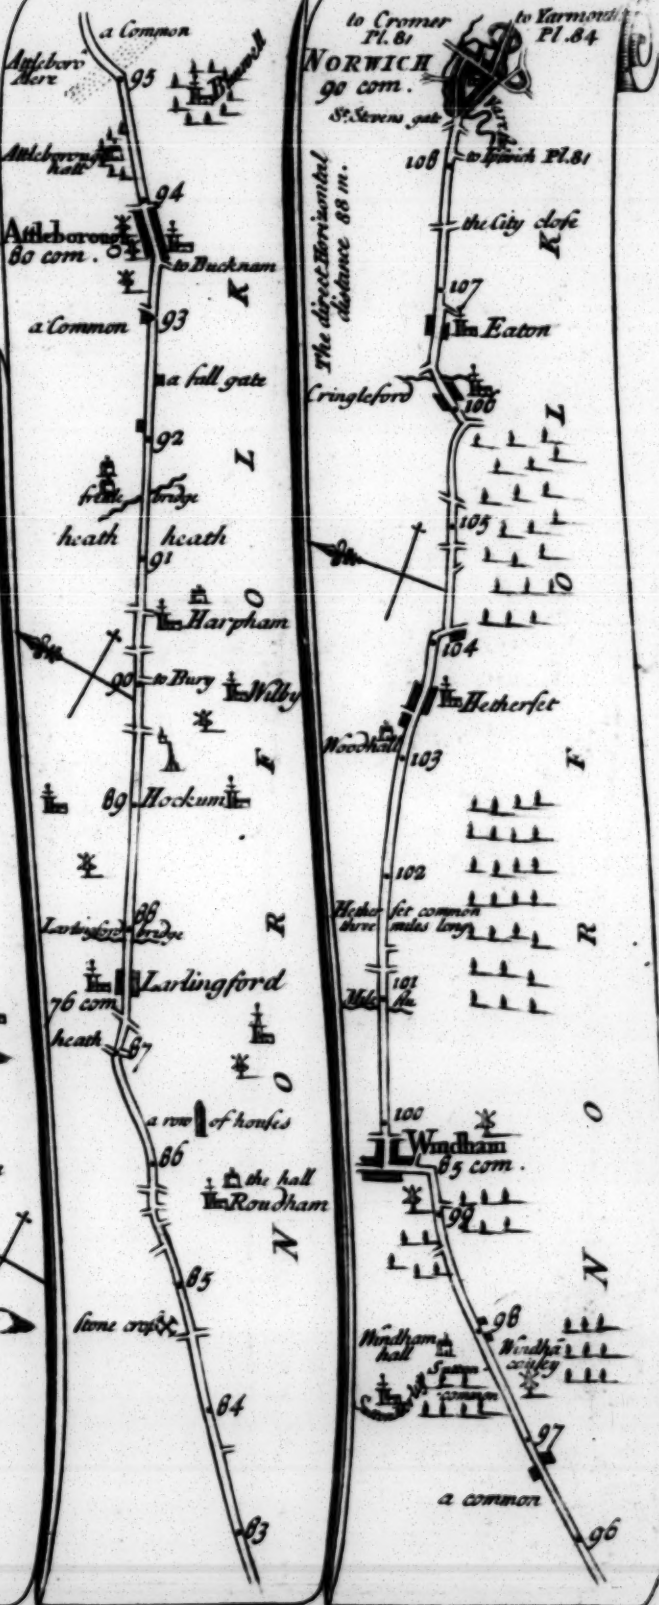 a Common
Attleboro'
Mere
95
Attleborough
hall
94
Attleborough
80 com.
to Bucknam
a Common
93
a fall gate
92
bridge
heath heath
91
Harpham
90
to Bury
Wilby
89
Hockum
88
Larlingford bridge
Larlingford
76 com
heath
87
a row of houses
86
the hall
Roudham
85
Stone crosse
84
83
N O R F O L K
to Cromer
Pl. 81
to Yarmouth
Pl. 84
NORWICH
90 com.
St. Stevens gate
108
to Ipswich Pl. 81
the City close
The direct Horizontal
distance 88 m.
107
Eaton
Cringleford
106
105
104
Hetherset
Woodhall
103
102
Hetherset common
three miles long
101
100
Windham
85 com.
99
98
Windham
hall
Windhã
common
97
a common
96
N O R F O L K